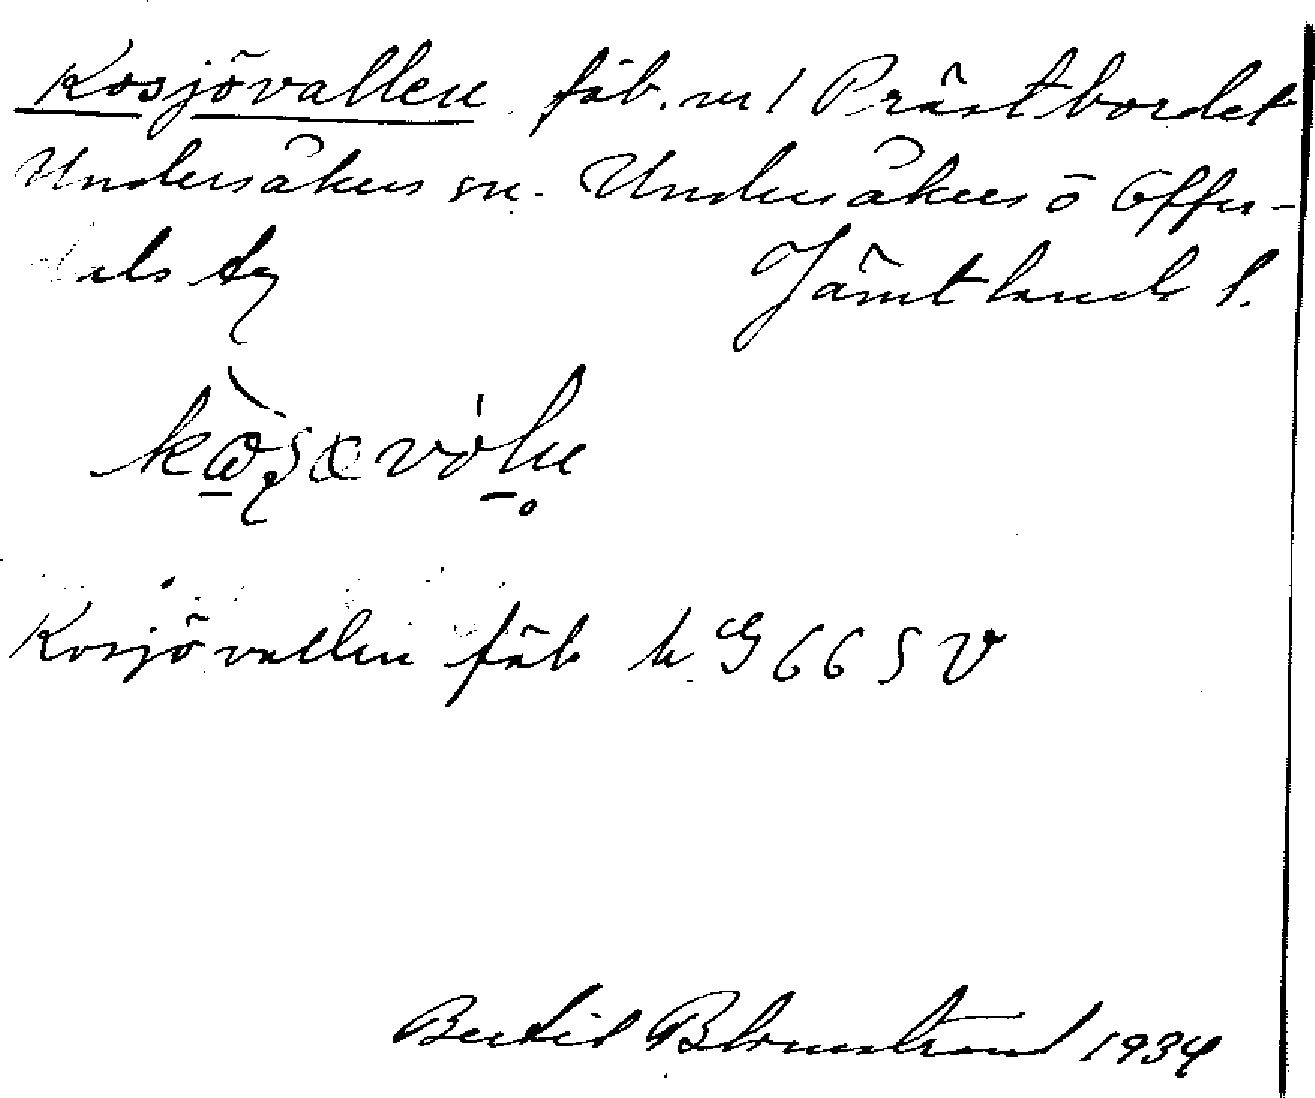 Kosjövallen fäb. nr 1 Prästbordet
Undersåkers sn. Undersåkers o Offer-
dals tg Jämtlands l.
Kosjövallen fäb k G 665 V
Bertil Blomstrand 1934